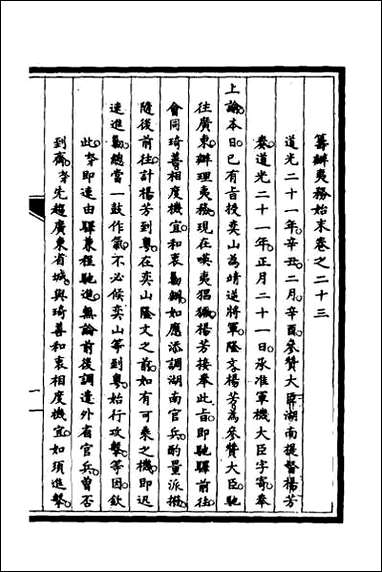 籌辦夷務始末卷之二十三
道光二十一年辛丑二月辛酉參贊大臣湖南提督楊芳
奏道光二十一年正月二十一日承准軍機大臣字寄奉
上諭本日已有旨授奕山為靖逆將軍隆文楊芳為參贊大臣馳
往廣東辦理夷務現在嘆夷猖獗楊芳接奉此旨即馳驛前往
會同琦善相度機宜和衷勦辦如應添調湖南官兵酌量派撥
隨後前往計楊芳到粵在奕山隆文之前如有可乘之機即迅
速進勦總當一鼓作氣不必候奕山等到粵始行攻擊等因欽
此等即速由驛兼程馳進無論前後調遣外省官兵曾否
到齊等先趨廣東省城與琦善和衷相度機宜如須進擊
一